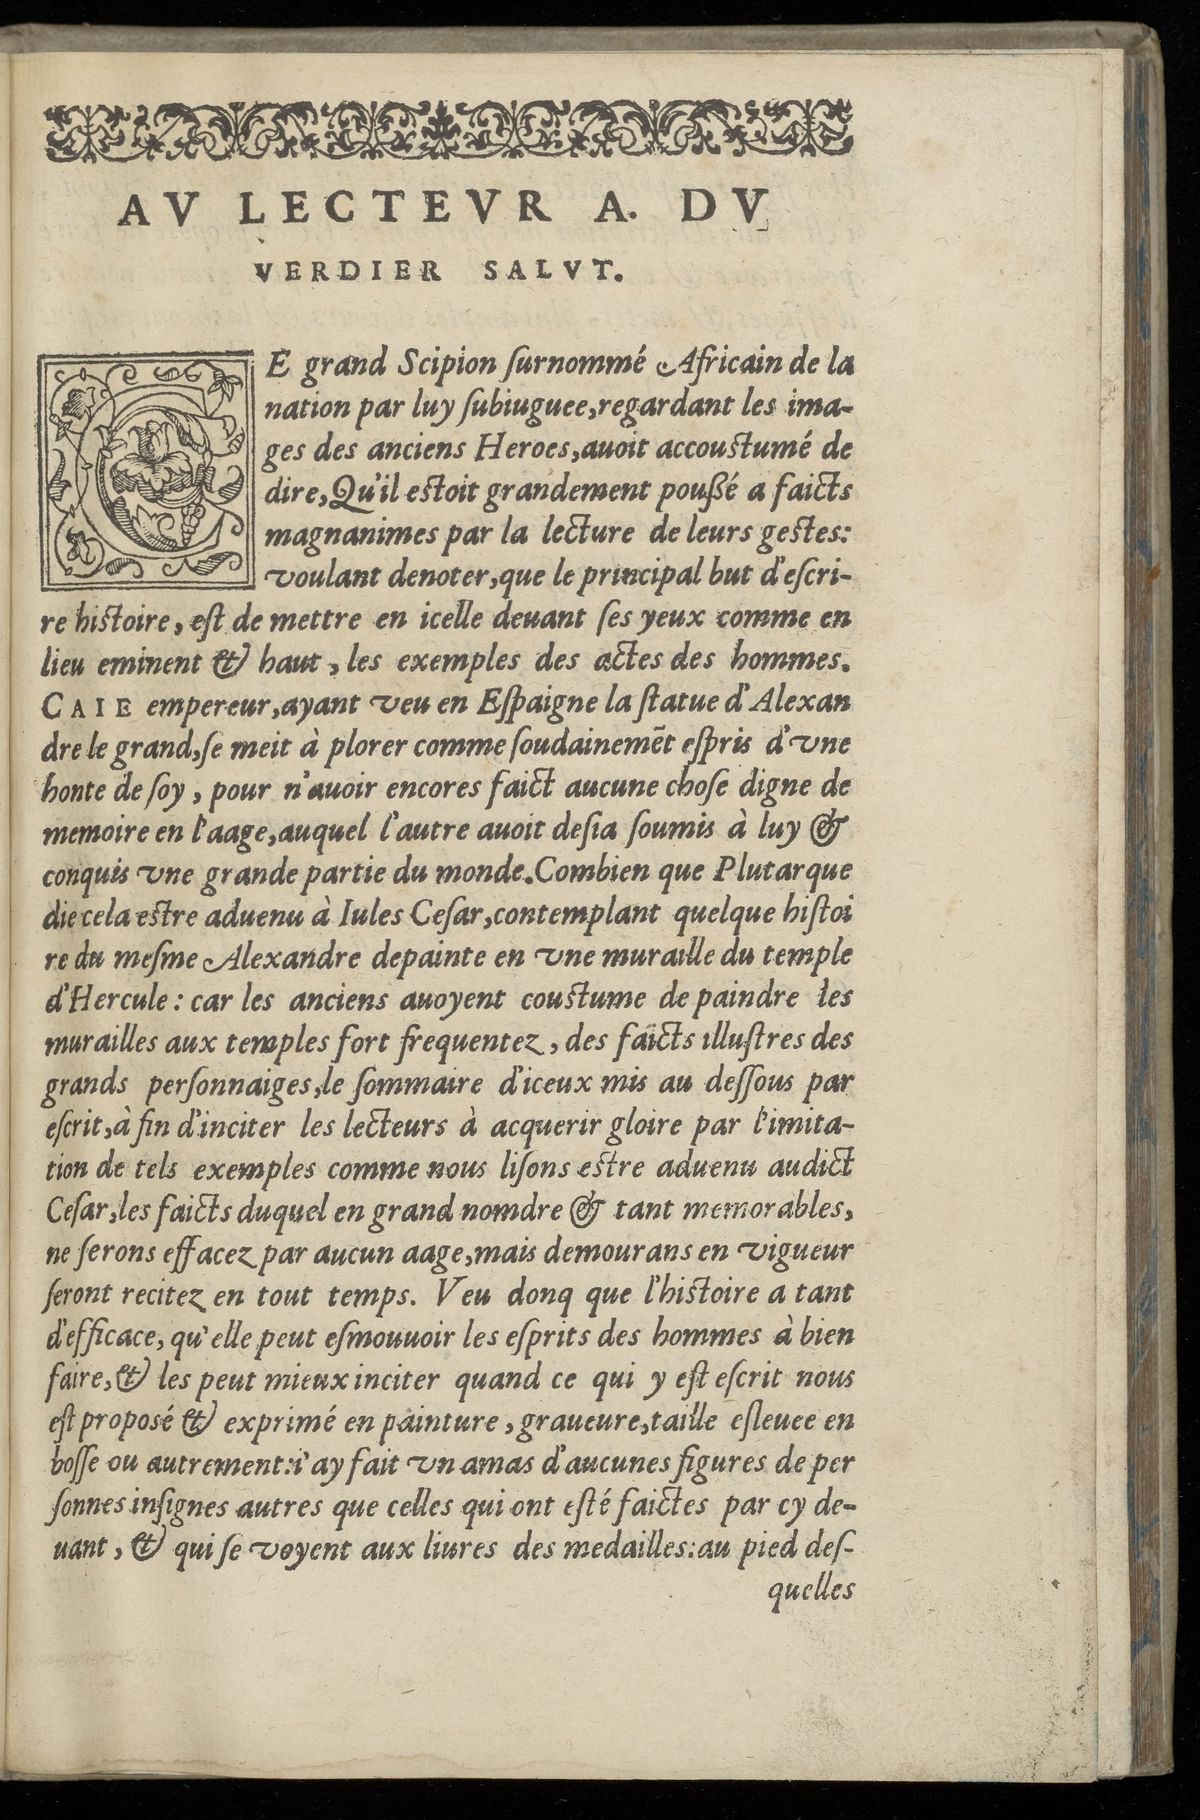 AV LECTEVR A. DV
VERDIER SALVT.
CE grand Scipion ſurnommé Africain de la
nation par luy ſubiuguee,regardant les ima-
ges des anciens Heroes,auoit accouſtumé de
dire,Qu'il eſtoit grandement pouſſé a faicts
magnanimes par la lecture de leurs geſtes:
voulant denoter,que le principal but d'eſcri-
re hiſtoire, eſt de mettre en icelle deuant ſes yeux comme en
lieu eminent & haut, les exemples des actes des hommes.
CAIE empereur,ayant veu en Eſpaigne la ſtatue d'Alexan
dre le grand,ſe meit à plorer comme ſoudainemẽt eſpris d'vne
honte de ſoy, pour n'auoir encores faict aucune choſe digne de
memoire en l'aage,auquel l'autre auoit deſia ſoumis à luy &
conquis vne grande partie du monde.Combien que Plutarque
die cela eſtre aduenu à Iules Ceſar,contemplant quelque hiſtoi
re du meſme Alexandre depainte en vne muraille du temple
d'Hercule: car les anciens auoyent couſtume de paindre les
murailles aux temples fort frequentez, des faicts illuſtres des
grands perſonnaiges,le ſommaire d'iceux mis au deſſous par
eſcrit,à fin d'inciter les lecteurs à acquerir gloire par l'imita-
tion de tels exemples comme nous liſons eſtre aduenu audict
Ceſar,les faicts duquel en grand nomdre & tant memorables,
ne ſerons effacez par aucun aage,mais demourans en vigueur
ſeront recitez en tout temps. Veu donq que l'hiſtoire a tant
d'efficace, qu'elle peut eſmouuoir les eſprits des hommes à bien
faire, & les peut mieux inciter quand ce qui y eſt eſcrit nous
eſt propoſé & exprimé en painture, graueure,taille eſleuee en
boſſe ou autrement:i'ay fait vn amas d'aucunes figures de per
ſonnes inſignes autres que celles qui ont eſté faictes par cy de-
uant, & qui ſe voyent aux liures des medailles:au pied deſ-
quelles